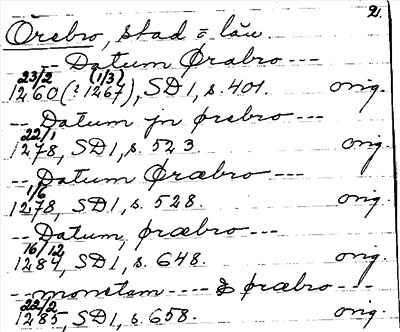 2.
Örebro, stad o län.
-- Datum Ørabro ---
23/2 (1/3)
1260 (?1267), SD1, s. 401. orig.
-- Datum jn ørebro ---
22/1
1278, SD1, s. 523. orig.
-- Datum Øræbro ---
1/6
1278, SD1, s. 528. orig.
-- Datum, øræbro ---
16/12
1284, SD1, s. 648. orig.
-- monetam ---- øræbro ---
22/2
1285, SD1, s. 658. orig.